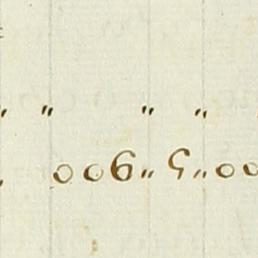 " " " "
" 006 " 5 " 00